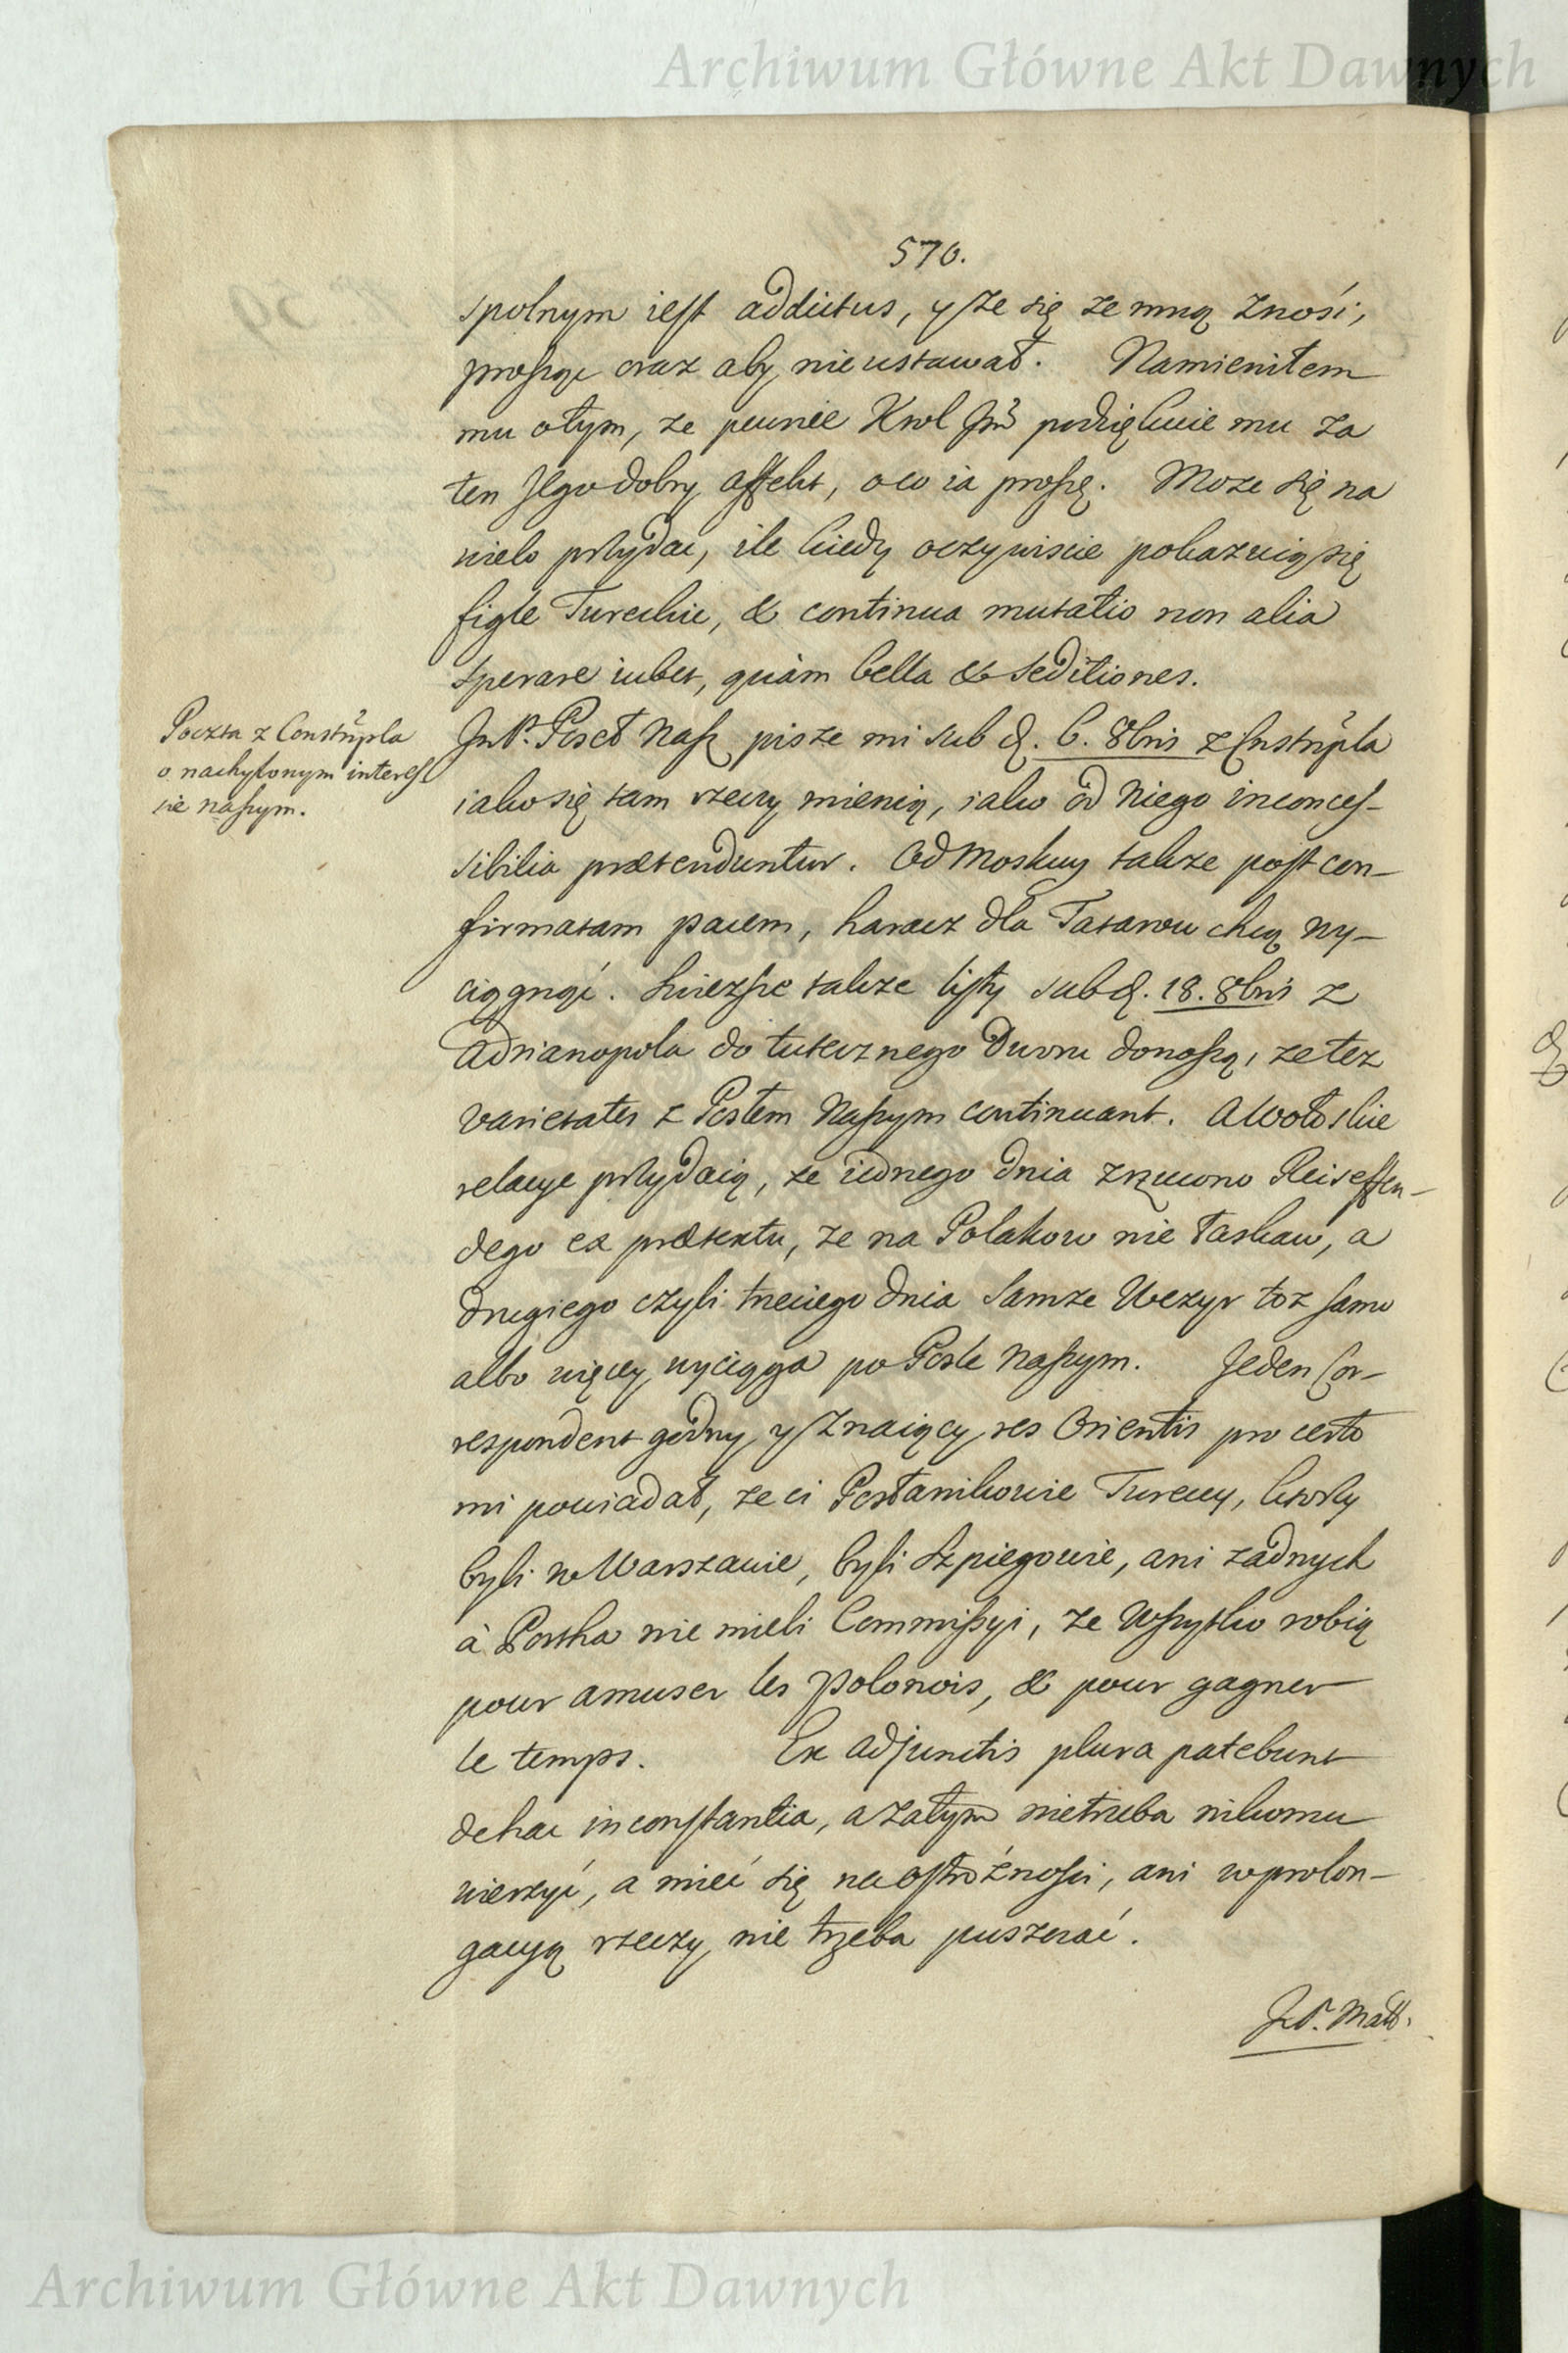 Archiwum Główne Akt Dawnych
570.
spolnym iest addictus, y że się ze mną znośi,
prosząc oraz aby nieustawał. Namieniłem
mu otym, ze pewnie Krol Jm̃ podziękuie mu za
ten Jego dobry affekt, o co ia proszę. Moze się na
wielo przydac, ile kiedy oczywiscie pokazuią się
figle Tureckie, & continua mutatio non alia
sperare iubet, quàm bella & seditiones.
Poczta z Constñpla
o nachylonym interes
sie naszym.
JmP. Poseł Nasz pisze mi sub d. 6. 8bris z Cnstñpla
iako się tam rzeczy mienią, iako od Niego inconces-
sibilia prætenduntur. Od Moskwy takze post con-
firmatam pacem, haracz dla Tatarow chcą wy-
ciągnąć. Swiezsze takze listy sub d. 18. 8bris z
Adrianopola do tutecznego Dworu donoszą, ze tez
varietates z Posłem Naszym continuant. A Wołoskie
relacye przydaią, ze iednego dnia zrzucono Reiseffen-
dego ex prætextu, ze na Polakow nie łaskaw, a
drugiego czyli trzeciego dnia samże Wezyr toz samo
albo więcey wyciąga po Pośle Naszym. Jeden Cor-
respondent godny, y znaiący res Orientis pro certo
mi powiadał, ze ci Posłannikowie Tureccy, ktorzy
byli w Warszawie, byli Szpiegowie, ani zadnych
à Portha nie mieli Commissyi, ze wszystko robią
pour amuser les Polonois, & pour gagner
le temps. Ex adjunctis plura patebunt
de hac inconstantia, a zatym nietrzeba nikomu
wierzyć, a mieć się na ostróżnosci, ani w prolon-
gacyą rzeczy nie trzeba puszczać.
JcP. Matt.
Archiwum Główne Akt Dawnych